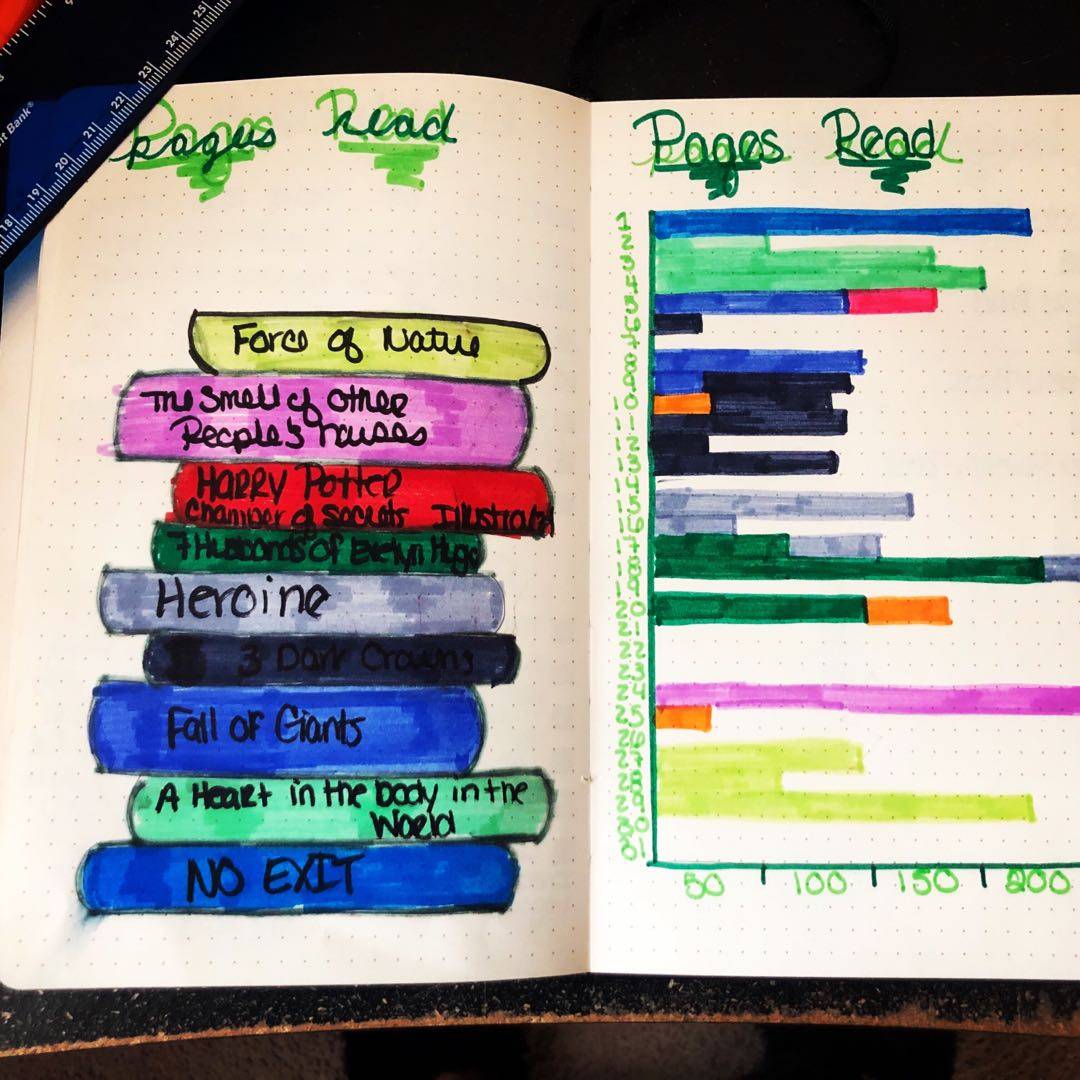 Pages Read
Force of Nature
The Smell of Other
People's houses
HARRY Potter
Chamber of Secrets Illustrated
7 Husbands of Evelyn Hugo
Heroine
3 Dark Crowns
Fall of Giants
A Heart in the body in the
World
NO EXIT
Pages Read
1
2
3
4
5
6
7
8
9
10
11
12
13
14
15
16
17
18
19
20
21
22
23
24
25
26
27
28
29
30
31
50 100 150 200
18 19 20 21 22 23 24 25
nt Bank®